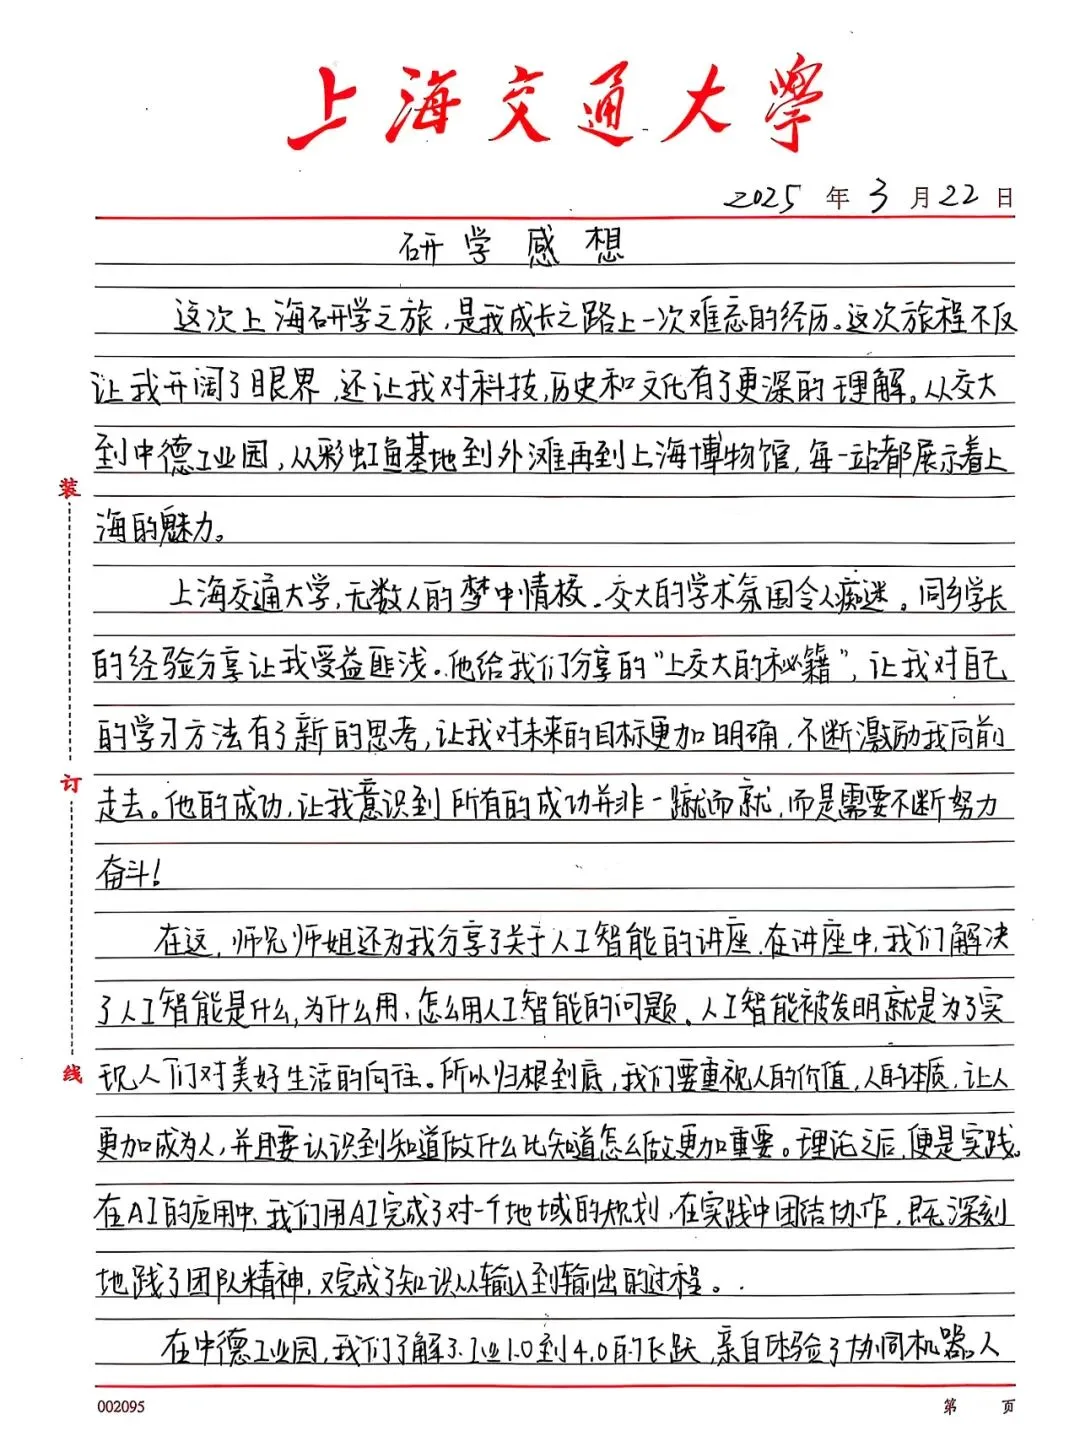 上海交通大學
2025 年 3 月 22 日
研学感想
这次上海研学之旅,是我成长之路上一次难忘的经历。这次旅程不仅
让我开阔了眼界,还让我对科技,历史和文化有了更深的理解。从交大
到中德工业园,从彩虹鱼基地到外滩再到上海博物馆,每一站都展示着上
海的魅力。
上海交通大学,无数人的梦中情校。交大的学术氛围令人痴迷。同乡学长
的经验分享让我受益匪浅。他给我们分享的“上交大的秘籍”,让我对自己
的学习方法有了新的思考,让我对未来的目标更加明确,不断激励我向前
走去。他的成功,让我意识到所有的成功并非一蹴而就,而是需要不断努力
奋斗!
在这,师兄师姐还为我分享了关于人工智能的讲座.在讲座中,我们解决
了人工智能是什么,为什么用,怎么用人工智能的问题。人工智能被发明就是为了实
现人们对美好生活的向往。所以归根到底,我们要重视人的价值,人的本质,让人
更加成为人,并且要认识到知道做什么比知道怎么做更加重要。理论之后,便是实践。
在AI的应用中,我们用AI完成了对一个地域的规划,在实践中团结协作,既深刻
地践了团队精神,又完成了知识从输入到输出的过程。
在中德工业园,我们了解了工业1.0到4.0的飞跃,亲自体验了协同机器人
装
订
线
002095
第 页